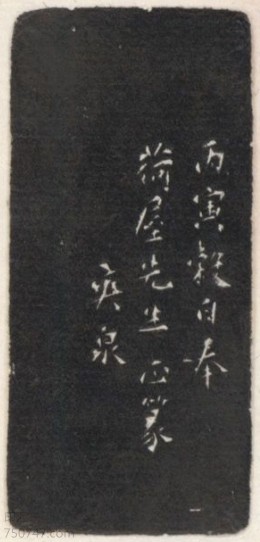 丙寅穀日奉
荷屋先生正篆
泉